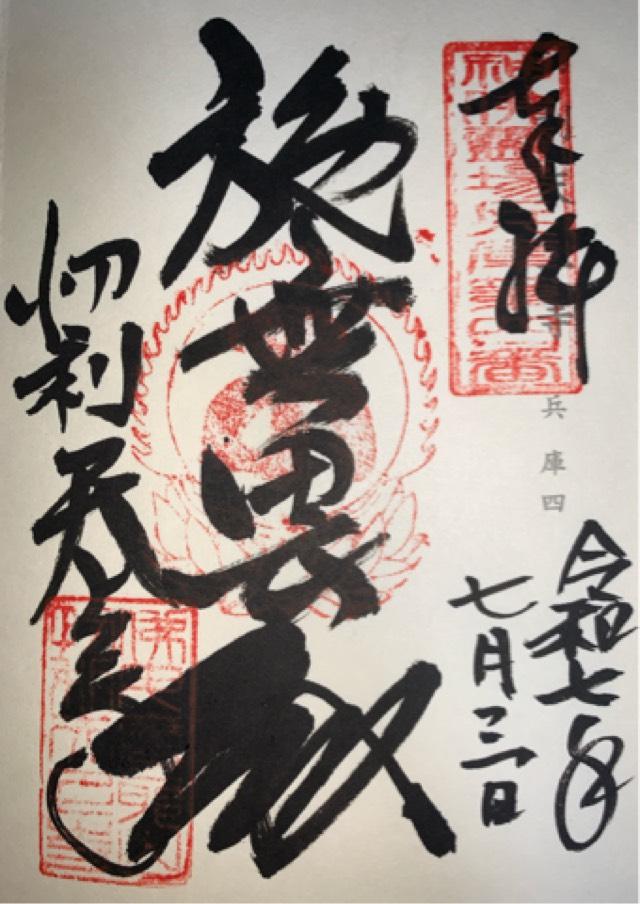 奉拝
兵庫四
令和七年
七月三日
施無畏殿
忉利天上寺